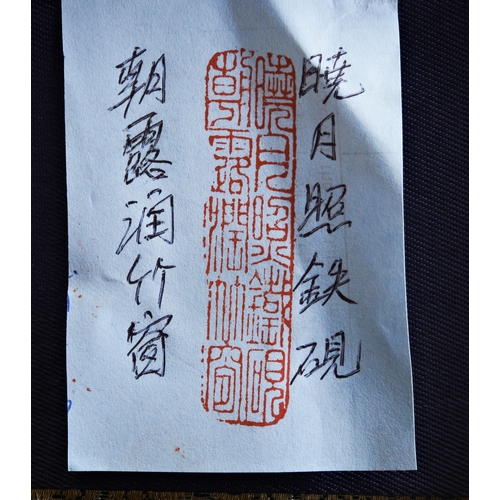 暁月照鉄硯
暁月照鐵硯
朝露潤竹窗
朝露润竹窗